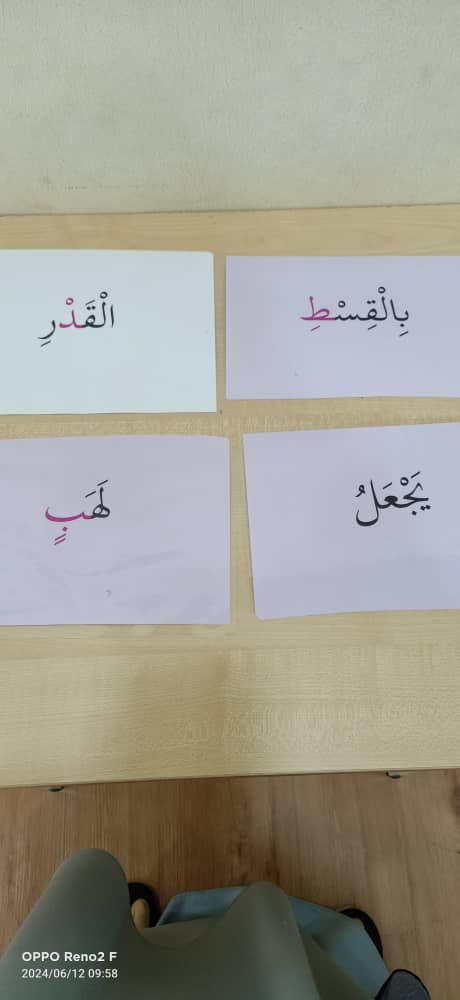 بِالْقِسْطِ
الْقَدْرِ
يَجْعَلُ
لَهَبٍ
OPPO Reno2 F
2024/06/12 09:58